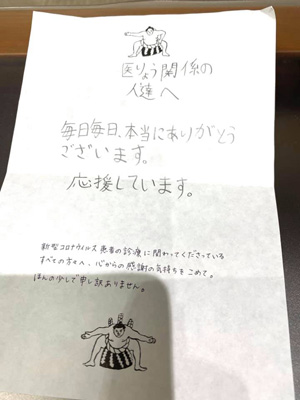 医りょう関係の
人達へ
毎日毎日、本当にありがとう
ございます。
応援しています。
新型コロナウィルス患者の診療に関わってくださっている
すべての方々へ、心からの感謝の気持ちをこめて。
ほんの少しで申し訳ありません。